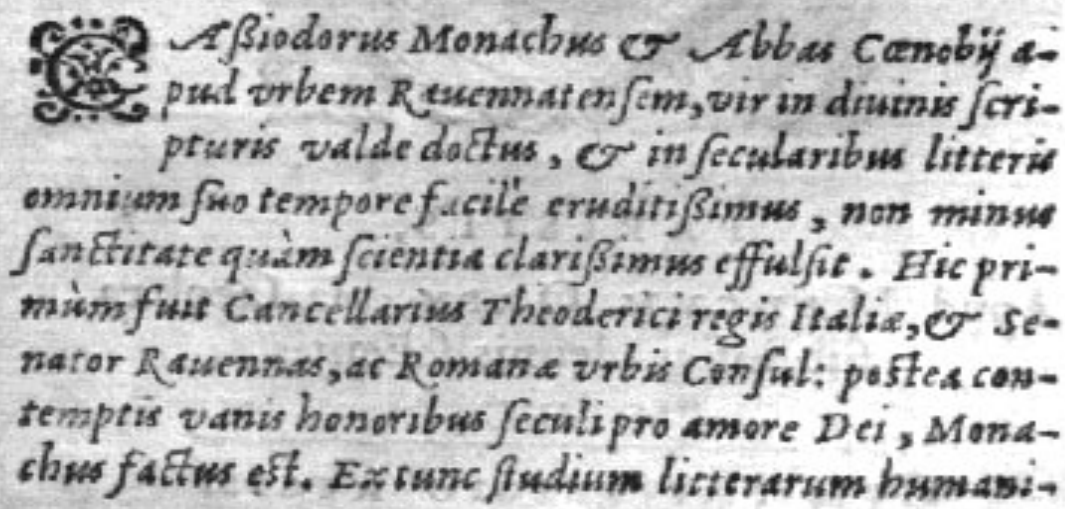 CAßiodorus Monachus & Abbas Cœnobij a-
pud vrbem Rauennatensem, vir in diuinis scri-
pturis valde doctus, & in secularibus litteris
omnium suo tempore facilè eruditißimus, non minus
sanctitate quàm scientia clarißimus effulsit. Hic pri-
mùm fuit Cancellarius Theoderici regis Italiæ, & Se-
nator Rauennas, ac Romanæ vrbis Consul: postea con-
temptis vanis honoribus seculi pro amore Dei, Mona-
chus factus est. Ex tunc studium litterarum humani-